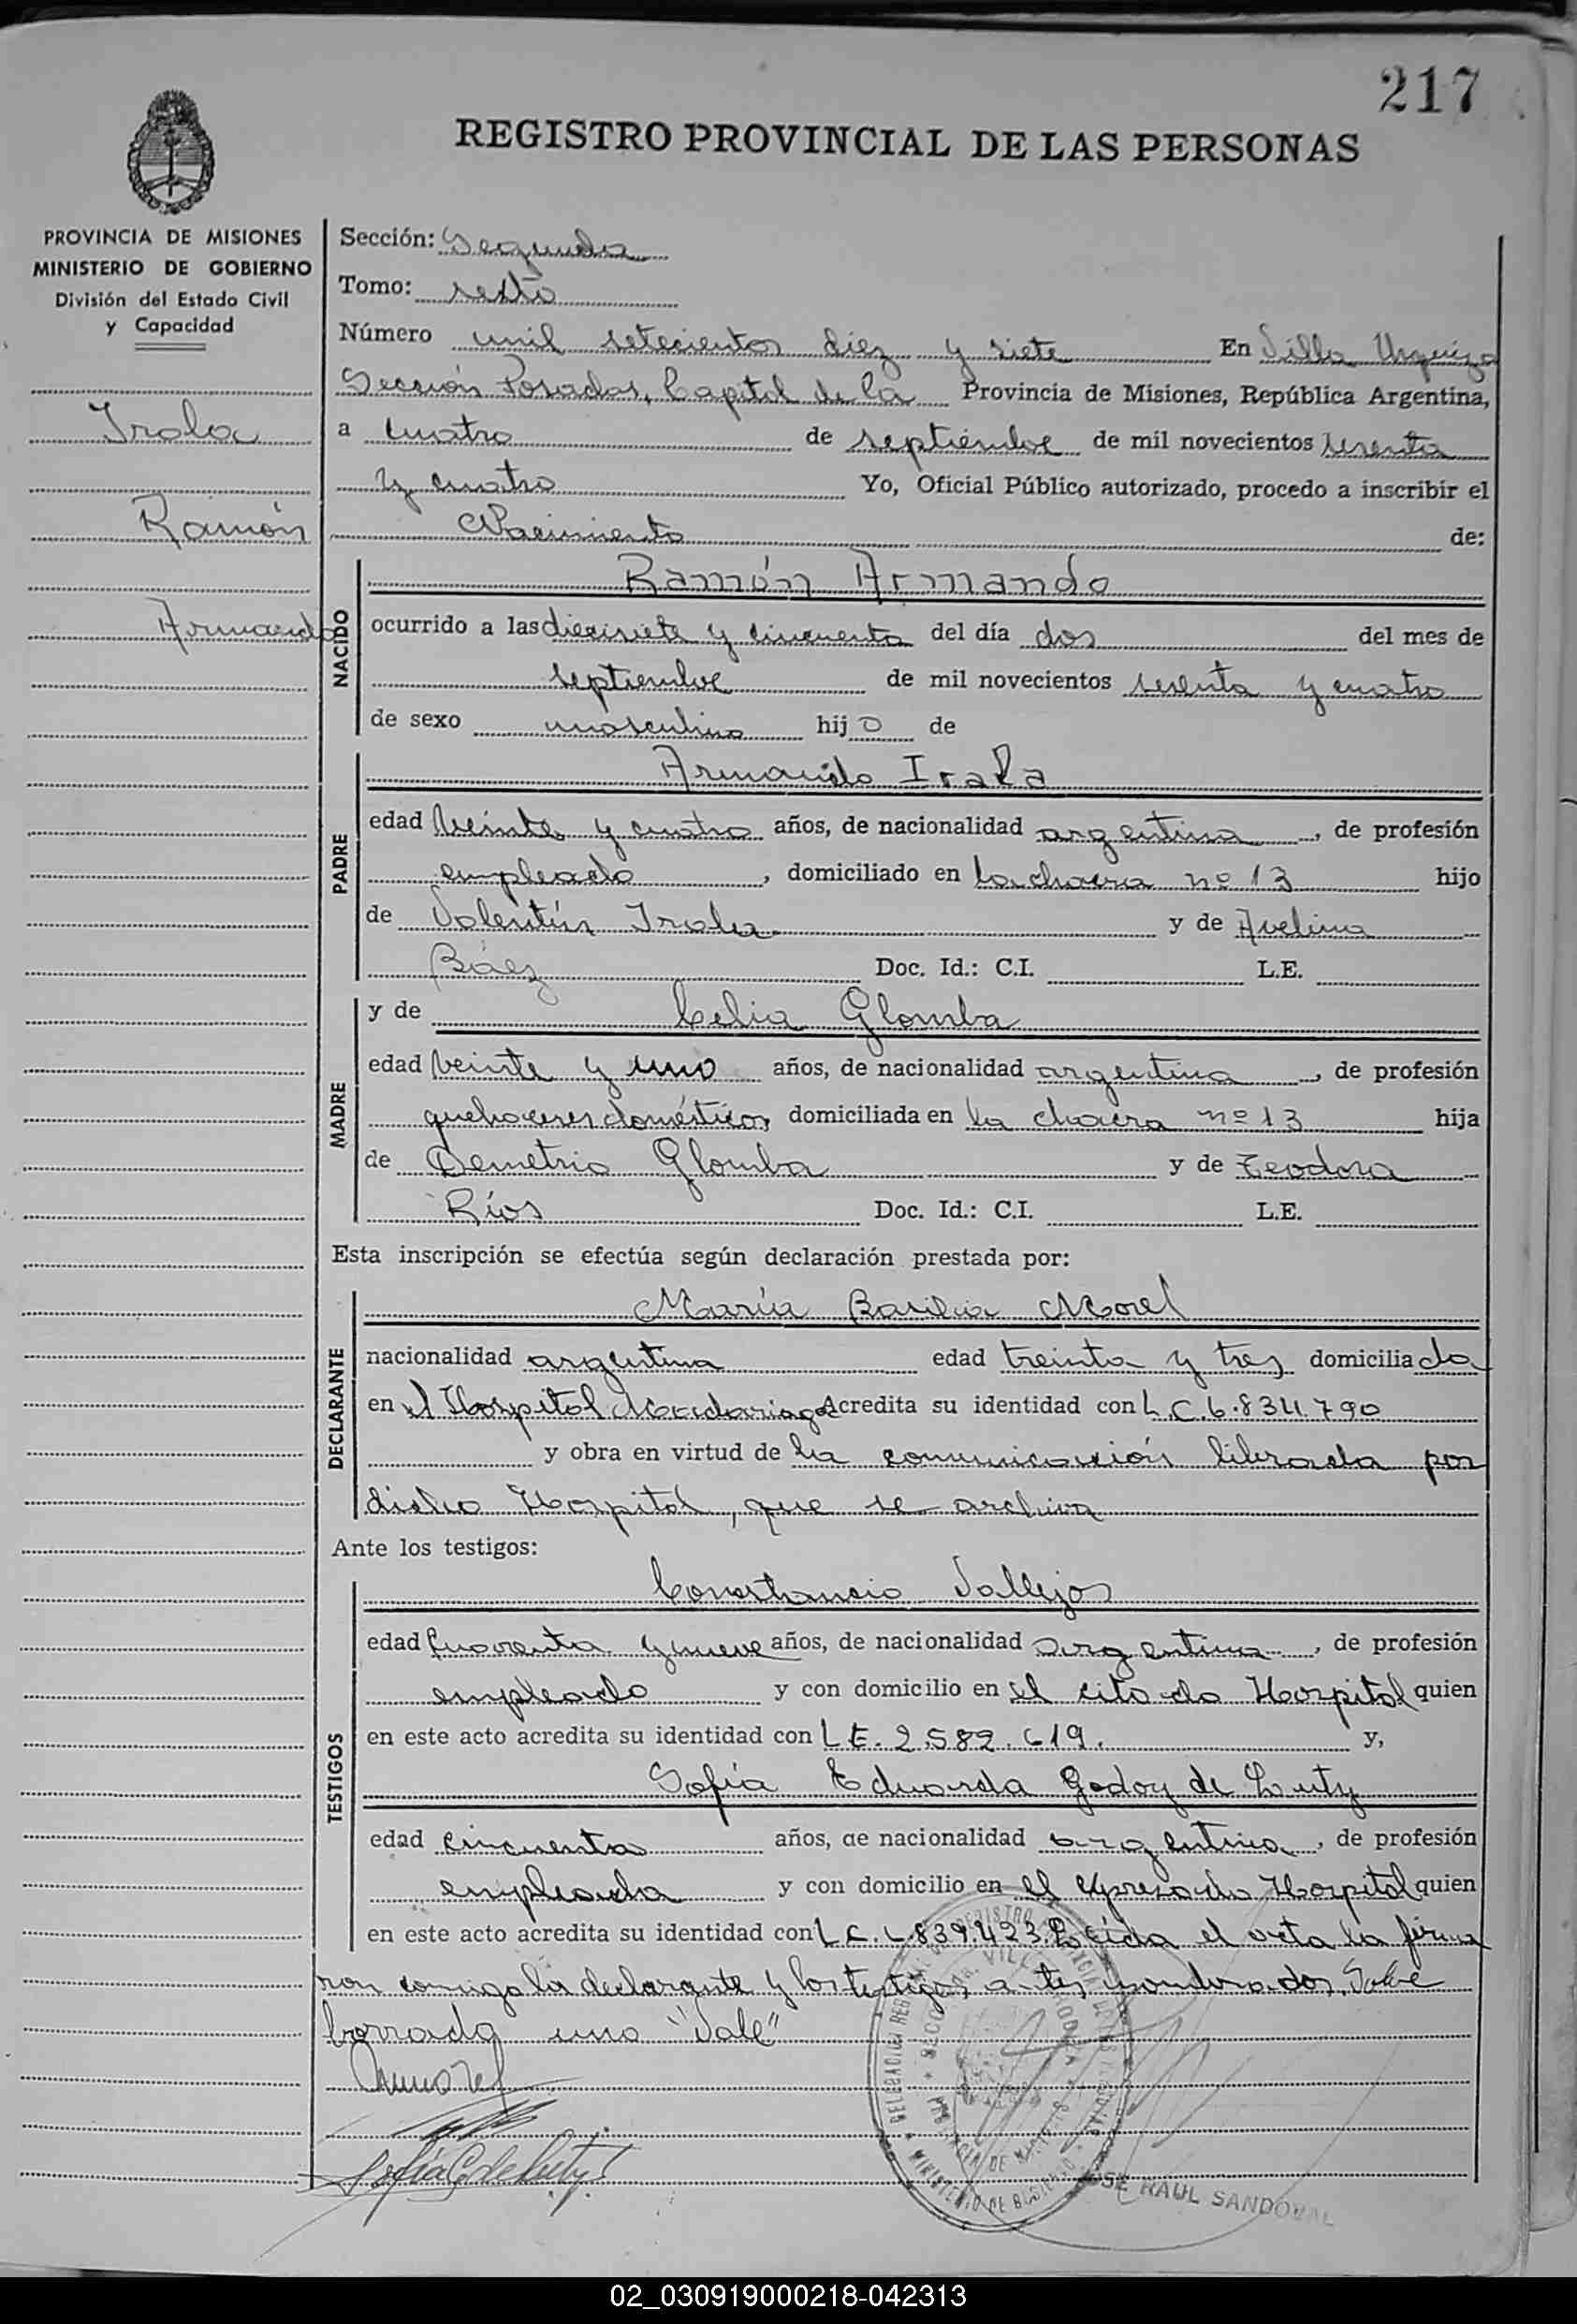 217
REGISTRO PROVINCIAL DE LAS PERSONAS
PROVINCIA DE MISIONES
MINISTERIO DE GOBIERNO
División del Estado Civil
y Capacidad
Irala
Ramón
Armando
Sección: Segunda
Tomo: sexto
Número mil setecientos diez y siete En Villa Urquiza
Sección Posadas, Capital de la Provincia de Misiones, República Argentina,
a cuatro de septiembre de mil novecientos sesenta
y cuatro Yo, Oficial Público autorizado, procedo a inscribir el
Nacimiento de:
NACIDO
Ramón Armando
ocurrido a las diecisiete y cincuenta del día dos del mes de
septiembre de mil novecientos sesenta y cuatro
de sexo masculino hijo de
PADRE
Armando Irala
edad veinte y cuatro años, de nacionalidad argentina, de profesión
empleado, domiciliado en la chacra nº 13 hijo
de Valentín Irala y de Avelina
Báez Doc. Id.: C.I. L.E.
MADRE
y de Celia Glomba
edad veinte y uno años, de nacionalidad argentina, de profesión
quehaceres domésticos domiciliada en la chacra nº 13 hija
de Demetrio Glomba y de Teodora
Ríos Doc. Id.: C.I. L.E.
Esta inscripción se efectúa según declaración prestada por:
DECLARANTE
María Basilia Morel
nacionalidad argentina edad treinta y tres domiciliada
en el Hospital Madariaga Acredita su identidad con L.C. 6.834.790
y obra en virtud de la comunicación librada por
dicho Hospital, que se archiva
Ante los testigos:
TESTIGOS
Constancio Vallejos
edad cuarenta y nueve años, de nacionalidad argentina, de profesión
empleado y con domicilio en el citado Hospital quien
en este acto acredita su identidad con L.E. 2.582.619. y,
Sofía Eduarda Godoy de Luty
edad cincuenta años, de nacionalidad argentina, de profesión
empleada y con domicilio en el expresado Hospital quien
en este acto acredita su identidad con L.C. 6.839.423. Leída el acta la firma
ron conmigo la declarante y los testigos antes nombrados. Sobre
borrado uno "Vale"
Sofía G de Luty
JOSE RAUL SANDOVAL
02_030919000218-042313